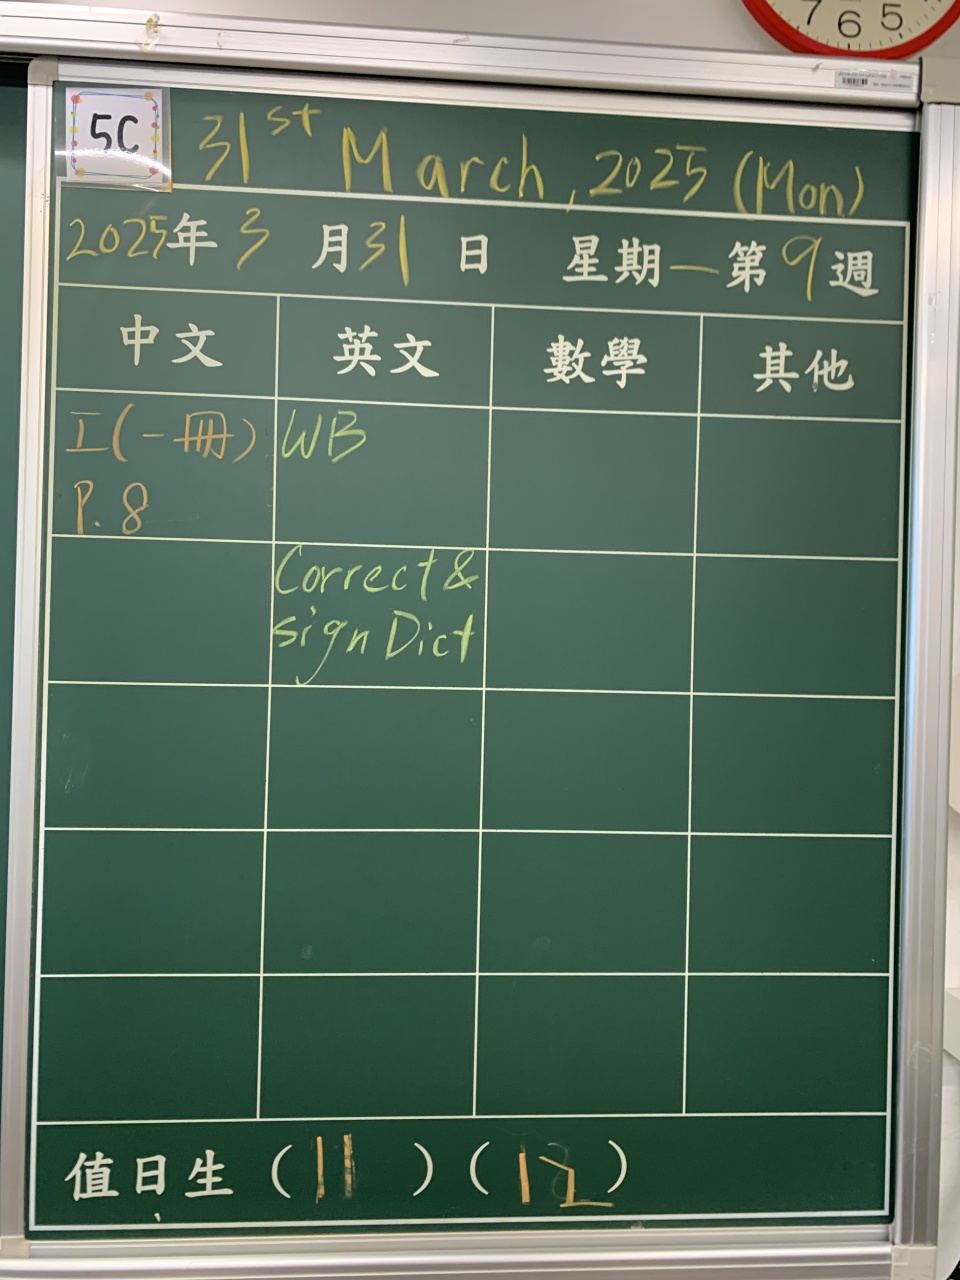 7 6 5
5C
31st March, 2025 (Mon)
2025年 3 月 31 日 星期一 第 9 週
中文 英文 數學 其他
工(一冊) WB
P. 8
Correct &
sign Dict
值日生 ( 11 ) ( 12 )